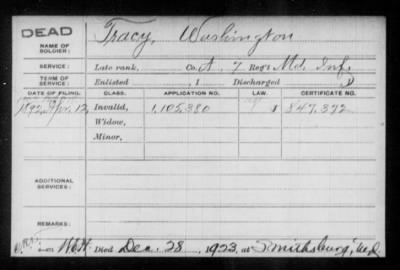 DEAD
NAME OF SOLDIER: Tracy, Washington
SERVICE: Late rank, Co. A 7 Reg't Md. Inf.
TERM OF SERVICE: Enlisted 1 Discharged
DATE OF FILING. CLASS. APPLICATION NO. LAW. CERTIFICATE NO.
1892, Apr. 12 Invalid, 1,105,380 847,372
Widow,
Minor,
ADDITIONAL SERVICES:
REMARKS:
Died Dec. 28, 1923, at Smithsburg, Md.